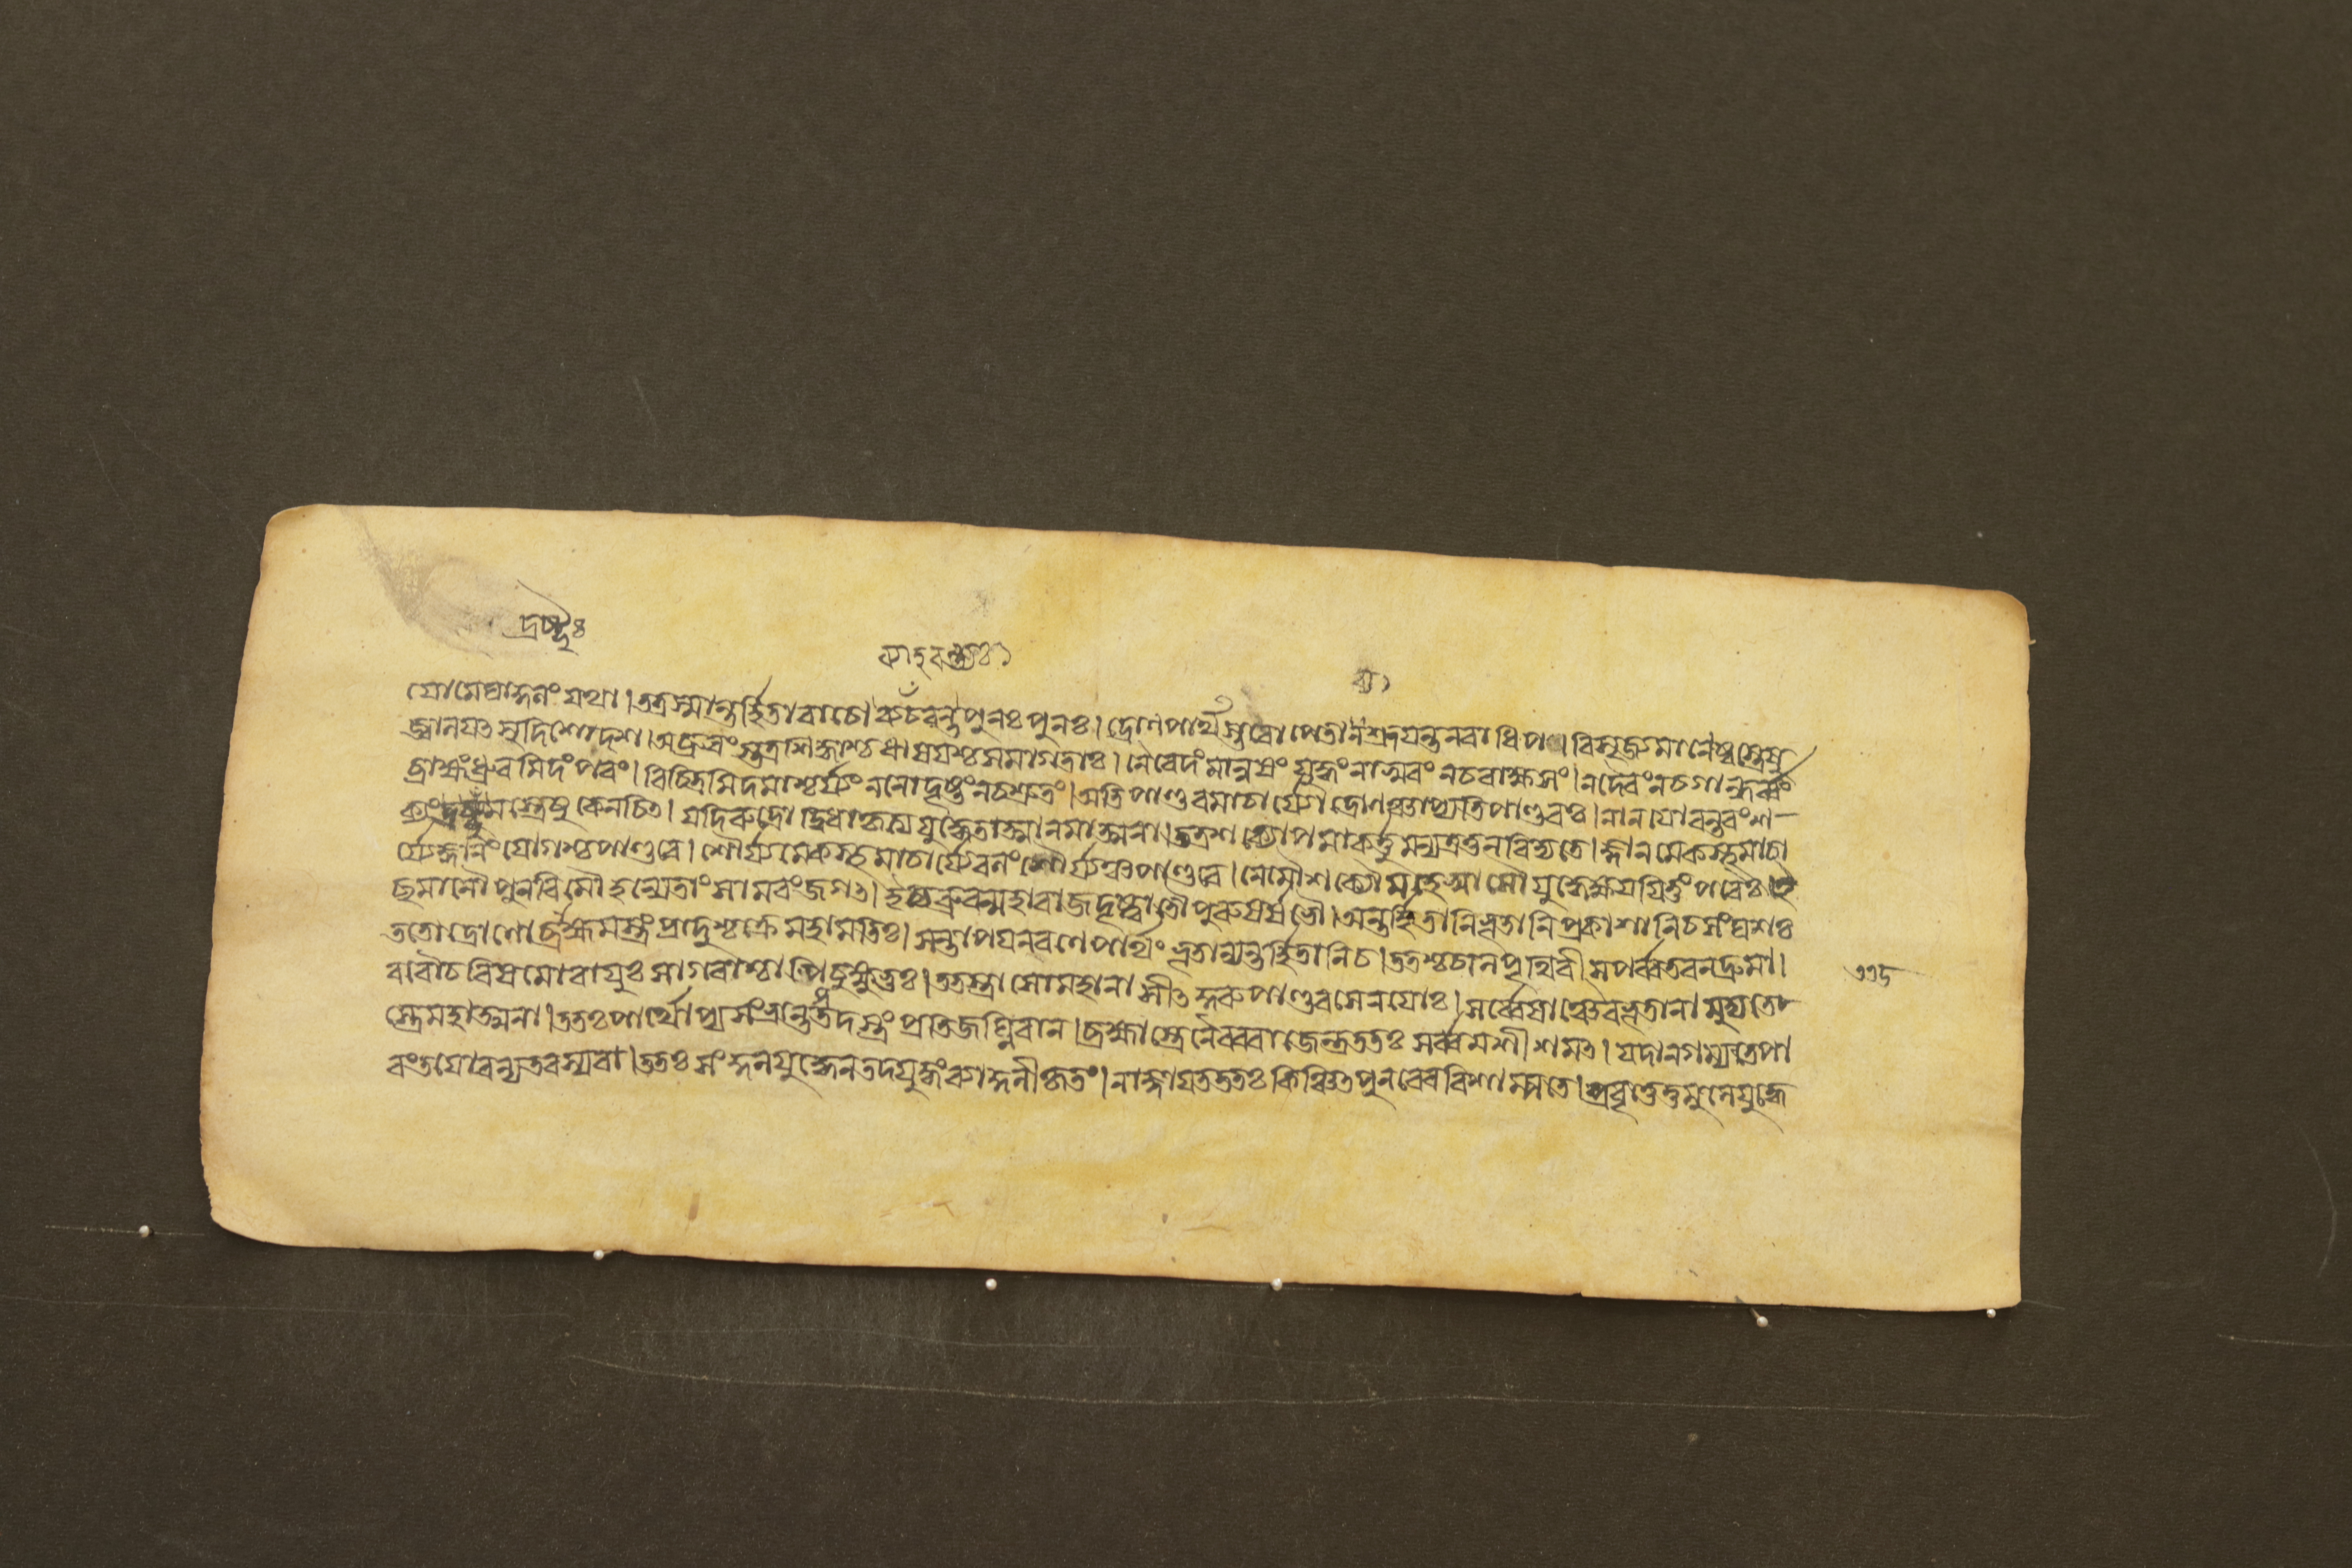 দ্রষ্টৃঃ
ব্য
যোমেঘাঙ্গনং যথা।তত্রস্মান্তর্হিতাবাচো ব্যচরন্তপুনঃ পুনঃ। দ্রোণপার্থস্তবোপেতা নশ্রদযন্তনরাধিপ। বিসৃজ্যমানেষ্বস্ত্রেষু
জ্বালযৎসুদিশোদশ।অব্রুবংস্তত্রসিদ্ধাশ্চঋষযশ্চসমাগতাঃ। নৈবেদং মানুষং যুদ্ধং নাসুরং নচরাক্ষসং।নদৈবং নচগান্ধর্ব্বং
ব্রাহ্মংধ্রুবমিদং পরং। বিচিত্রমিদমাশ্চর্য্যং ননোদৃষ্টংনচশ্রুতং।অতি পাণ্ডবমাচার্য্যো দ্রোণঞ্চাপ্যতিপাণ্ডবঃ।নানযোরন্তরংশ-
ক্যংদ্রষ্টুমস্ত্রেষু কেনচিৎ। যদিরুদ্রো দ্বিধাকৃত্য যুদ্ধ্যেতাত্মানমাত্মনা।তত্রশক্যোপমাকর্ত্তুমন্যত্রতুনবিদ্যতে।জ্ঞানমেকস্থমাচা
র্য্যেজ্ঞানং যোগশ্চপাণ্ডবে। শৌর্য্যমেকস্থমাচার্য্যেবলং শৌর্য্যঞ্চপাণ্ডবে। নেমৌশক্যৌমহেষ্বাসৌ যুদ্ধেক্ষযযিতুং পরৈঃ।ই
ছমানৌ পুনরিমৌ হন্যেতাং সামরং জগৎ।ইত্যব্রুবন্মহারাজদৃষ্ট্বা তৌ পুরুষর্ষভৌ।অন্তর্হিতানিভূতানিপ্রকাশানিচসংঘশঃ
ততোদ্রোণো ব্রাহ্মমস্ত্রং প্রাদুশ্চক্রে মহামতিঃ। সন্তাপযনরণেপার্থং ভূতান্যন্তর্হিতানিচ।ততশ্চচালপৃথিবী সপর্ব্বতবনদ্রুমা।
ববৌচ বিষমোবাযুঃ সাগরাশ্চাপি চুক্ষুভুঃ।ততস্ত্রাসোমহানাসীৎ কুরুপাণ্ডবসেনযোঃ। সর্ব্বেষাঞ্চৈবভূতানামুদ্যতে
স্ত্রেমহাত্মনা।ততঃপার্থোপ্যসংভ্রান্তস্তদস্ত্রং প্রতিজঘ্নিবান।ব্রহ্মাস্ত্রেণৈবরাজেন্দ্রততঃ সর্ব্বমশীশমৎ। যদানগম্যতেপা
রংতযোরন্যতরস্যবা।ততঃ সংকুলযুদ্ধেনতদযুদ্ধংব্যাকুলীকৃতং।নাজ্ঞাযতততঃ কিঞ্চিৎপুনরেববিশাম্পতে।প্রবৃত্তেতুমুলেযুদ্ধে